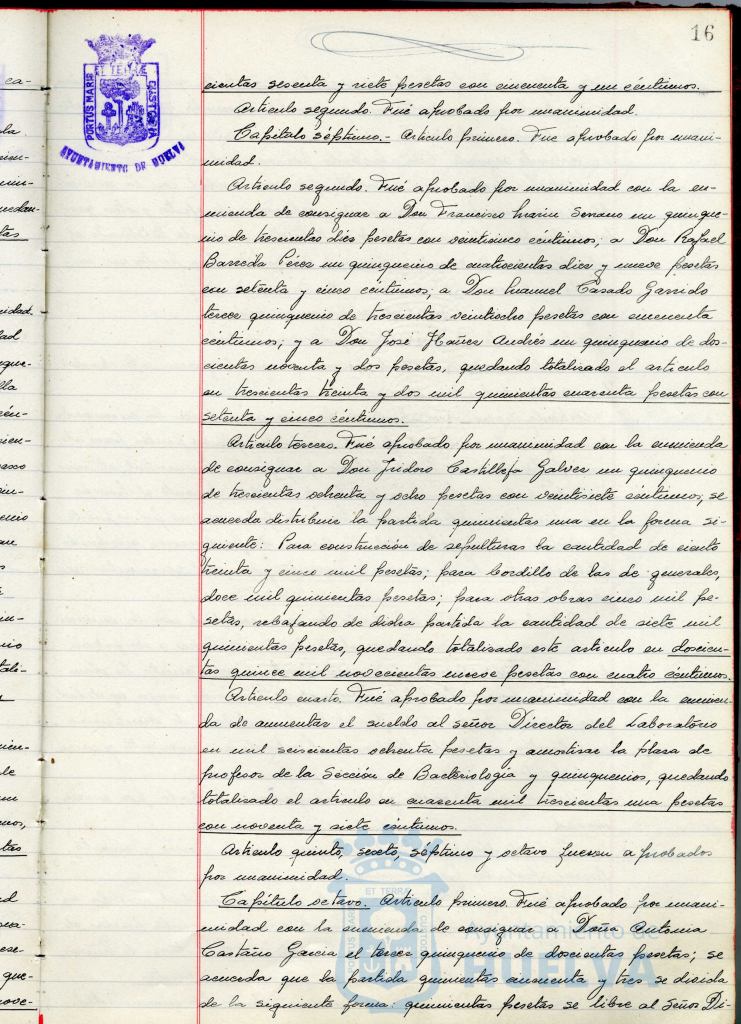 16
PORTUS MARIS
ET TERRÆ
CUSTODIA
AYUNTAMIENTO DE HUELVA
cientas sesenta y siete pesetas con cincuenta y un céntimos.
Artículo segundo. Fué aprobado por unanimidad.
Capítulo séptimo.- Artículo primero. Fué aprobado por unani-
midad.
Artículo segundo. Fué aprobado por unanimidad con la en-
mienda de consignar a Don Francisco Marín Serrano un quinque-
nio de trescientas diez pesetas con veinticinco céntimos; a Don Rafael
Barreda Pérez un quinquenio de cuatrocientas diez y nueve pesetas
con setenta y cinco céntimos; a Don Manuel Casado Garrido
tercer quinquenio de trescientas veintiocho pesetas con cincuenta
céntimos; y a Don José Ibáñez Andrés un quinquenio de dos-
cientas noventa y dos pesetas, quedando totalizado el artículo
en trescientas treinta y dos mil quinientas cuarenta pesetas con
setenta y cinco céntimos.
Artículo tercero. Fué aprobado por unanimidad con la enmienda
de consignar a Don Isidoro Castilleja Galvez un quinquenio
de trescientas ochenta y ocho pesetas con veintisiete céntimos; se
acuerda distribuir la partida quinientas una en la forma si-
guiente: Para construcción de sepulturas la cantidad de ciento
treinta y cinco mil pesetas; para bordillo de las de generales,
doce mil quinientas pesetas; para otras obras cinco mil pe-
setas, rebajando de dicha partida la cantidad de siete mil
quinientas pesetas, quedando totalizado este artículo en doscien-
tas quince mil novecientas nueve pesetas con cuatro céntimos.
Artículo cuarto. Fué aprobado por unanimidad con la enmien-
da de aumentar el sueldo al señor Director del Laboratorio
en mil seiscientas ochenta pesetas y amortizar la plaza de
profesor de la Sección de Bacteriología y quinquenios, quedando
totalizado el artículo en cuarenta mil trescientas una pesetas
con noventa y siete céntimos.
Artículo quinto, sexto, séptimo y octavo fueron aprobados
por unanimidad.
Capítulo octavo. Artículo primero. Fué aprobado por unani-
midad con la enmienda de consignar a Doña Antonia
Castaño García el tercer quinquenio de doscientas pesetas; se
acuerda que la partida quinientas cuarenta y tres se divida
de la siguiente forma: quinientas pesetas se libre al Señor Di-
Ayuntamiento de
HUELVA